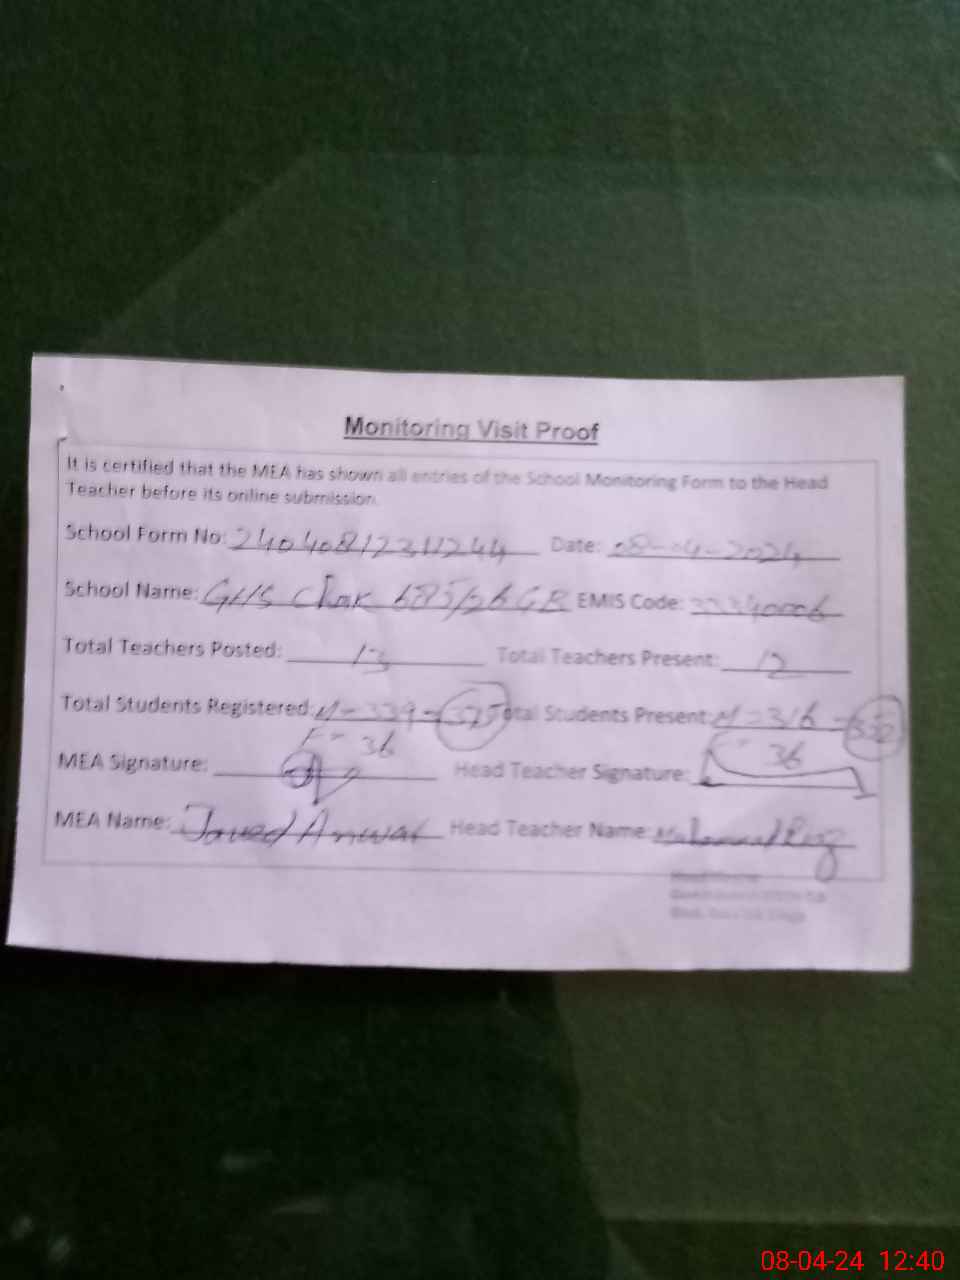 Monitoring Visit Proof
It is certified that the MEA has shown all entries of the School Monitoring Form to the Head
Teacher before its online submission.
School Form No: Date: 08-04-2024
School Name: GHS Chak 685/26 GB EMIS Code:
Total Teachers Posted: 13 Total Teachers Present: 12
Total Students Registered: M-339-375 Total Students Present: M-316-352
F- 36 F- 36
MEA Signature: Head Teacher Signature:
MEA Name: Javed Anwar Head Teacher Name: Muhammad
08-04-24 12:40